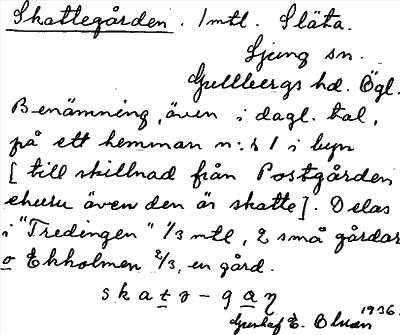 Skattegården. 1 mtl. Släta.
Ljung sn.
Gullbergs hd. Ögl.
Benämning, även i dagl. tal,
på ett hemman n:s 1 i byn
[till skillnad från Postgården
ehuru även den är skatte]. Delas
i "Tredingen" 1/3 mtl, 2 små gårdar
o Ekholmen 2/3, en gård.
Gustaf E. 1936.